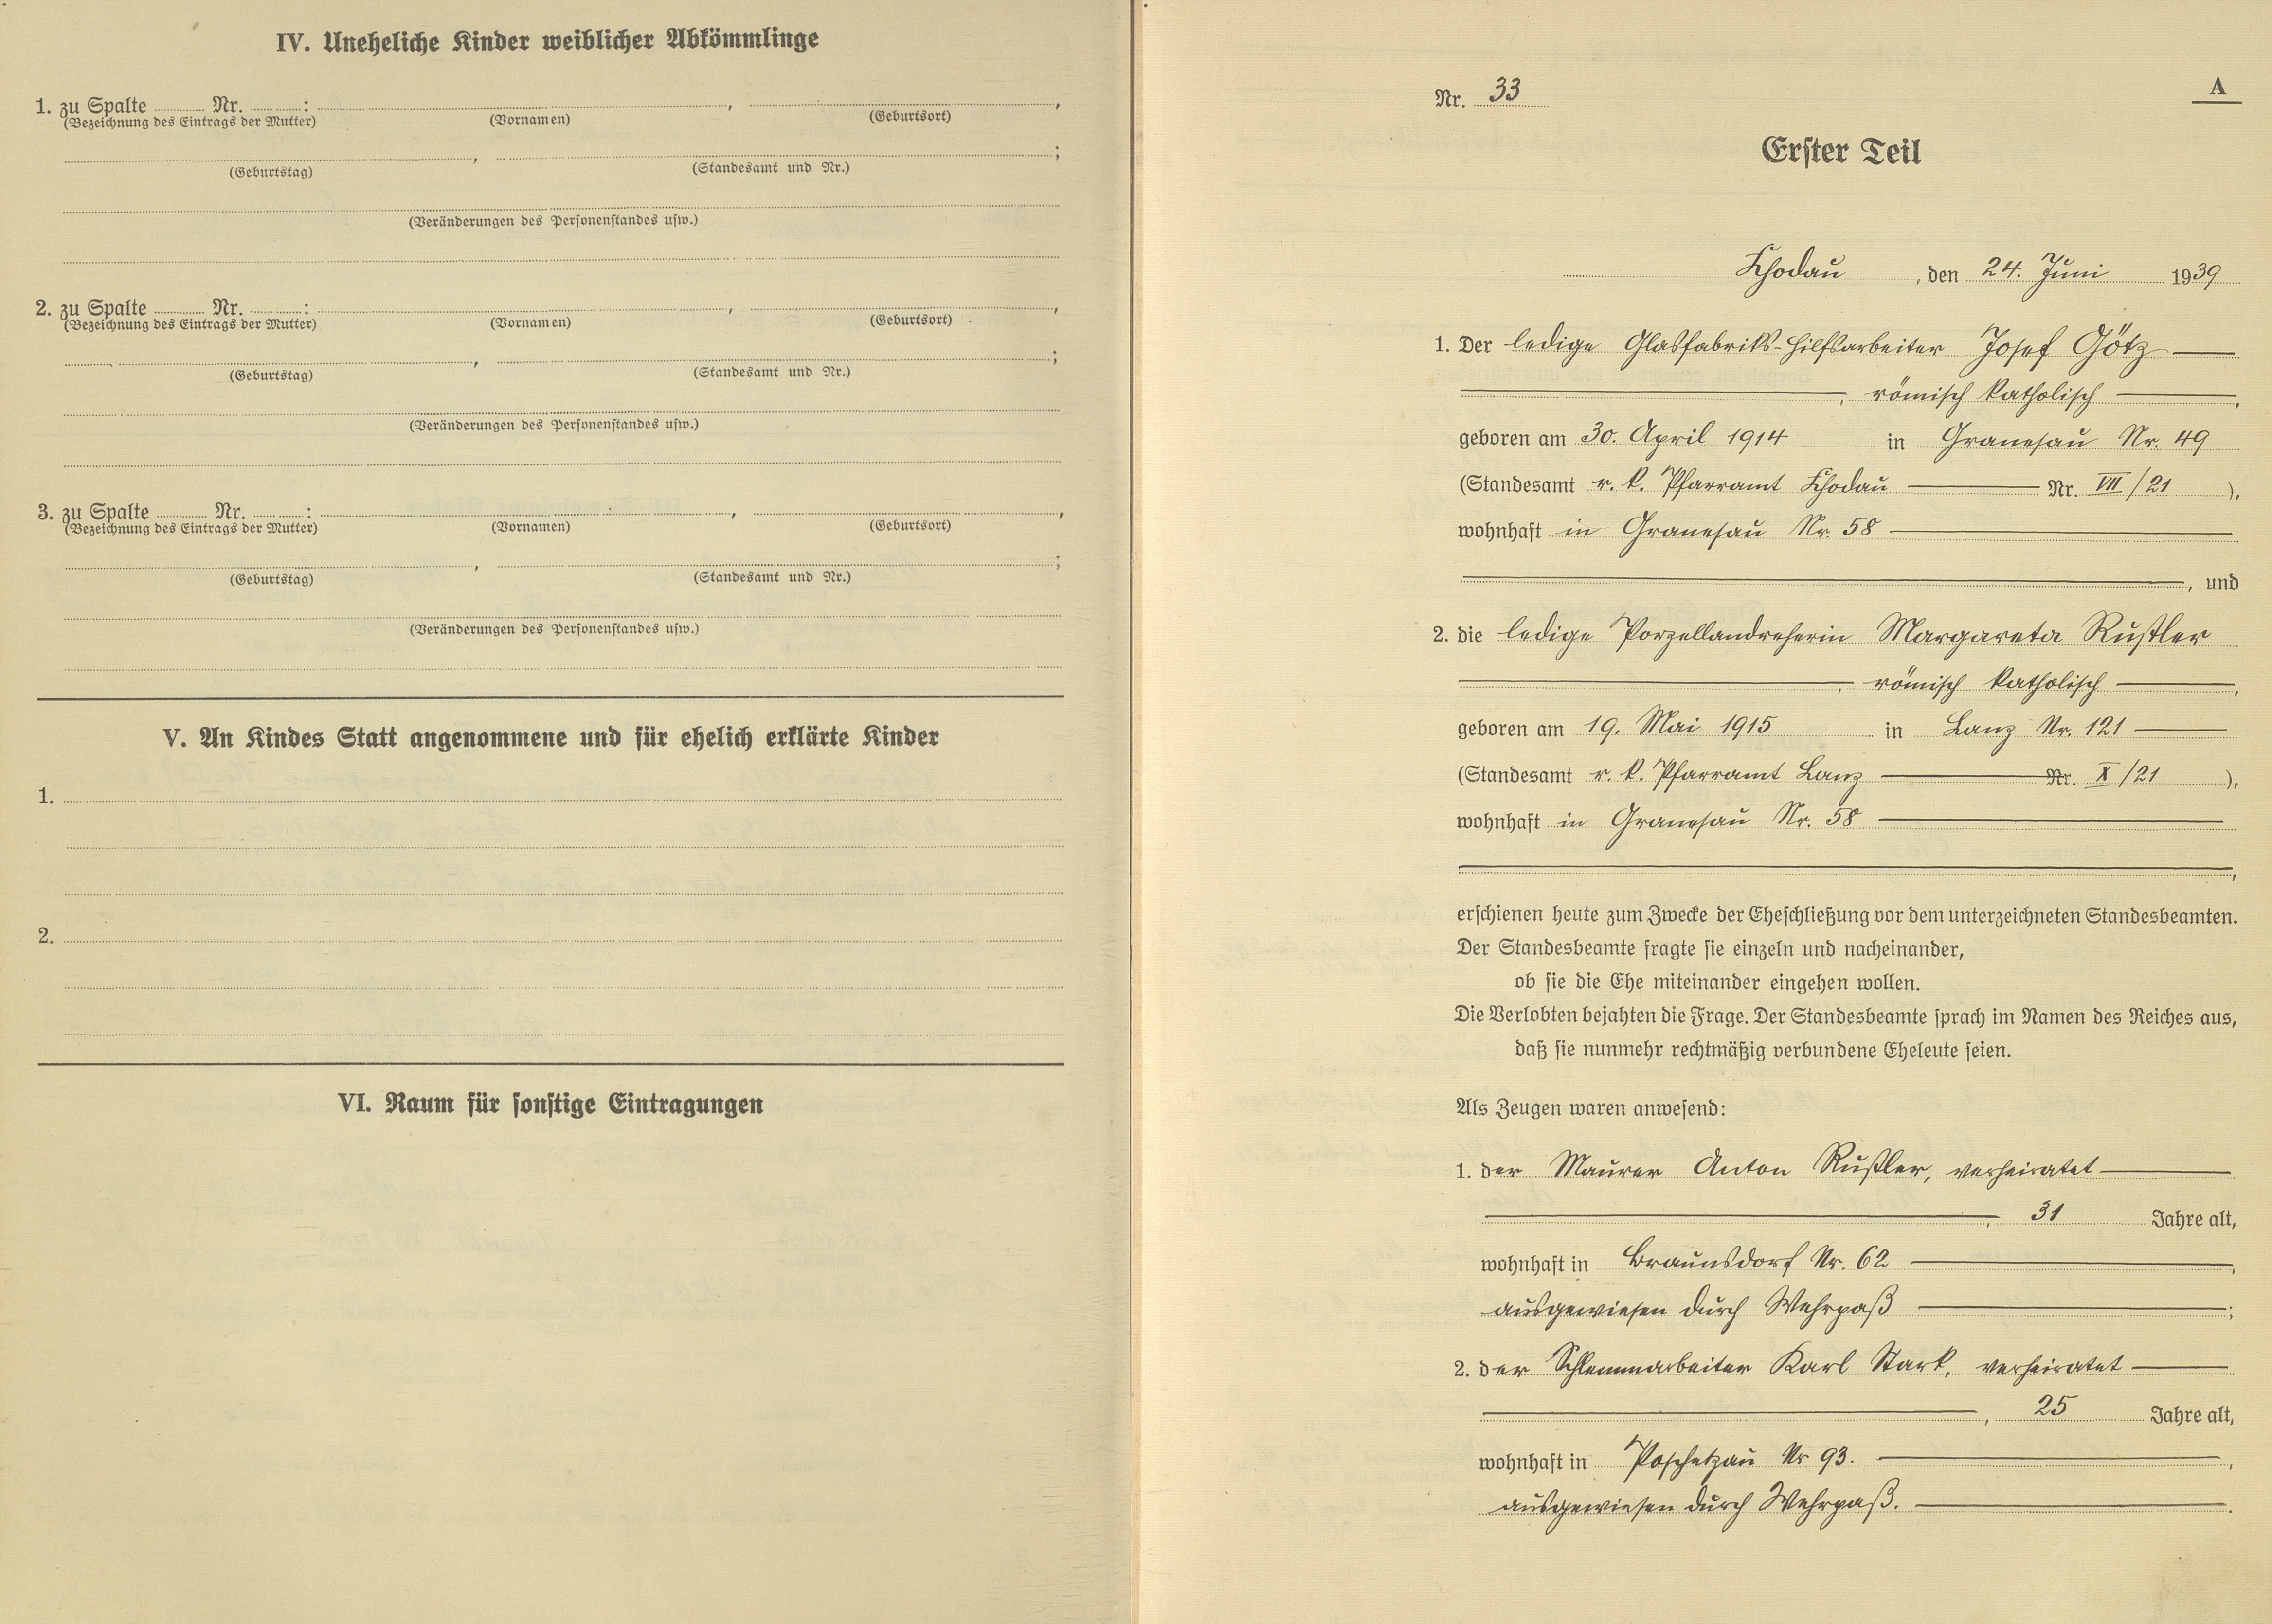 IV. Uneheliche Kinder weiblicher Abkömmlinge
1. zu Spalte ........ Nr. ........ : ........, ........,
(Bezeichnung des Eintrags der Mutter) (Vornamen) (Geburtsort)
........, ........;
(Geburtstag) (Standesamt und Nr.)
(Veränderungen des Personenstandes usw.)
2. zu Spalte ........ Nr. ........ : ........, ........,
(Bezeichnung des Eintrags der Mutter) (Vornamen) (Geburtsort)
........, ........;
(Geburtstag) (Standesamt und Nr.)
(Veränderungen des Personenstandes usw.)
3. zu Spalte ........ Nr. ........ : ........, ........,
(Bezeichnung des Eintrags der Mutter) (Vornamen) (Geburtsort)
........, ........;
(Geburtstag) (Standesamt und Nr.)
(Veränderungen des Personenstandes usw.)
V. An Kindes Statt angenommene und für ehelich erklärte Kinder
1.
2.
VI. Raum für sonstige Eintragungen
A
Nr. 33
Erster Teil
Chodau, den 24. Juni 1939
1. Der ledige Glasfabriks-Hilfsarbeiter Josef Götz
, römisch katholisch,
geboren am 30. April 1914 in Granesau Nr. 49
(Standesamt r. k. Pfarramt Chodau Nr. VII/21),
wohnhaft in Granesau Nr. 58
, und
2. die ledige Porzellandreherin Margareta Rustler
, römisch katholisch,
geboren am 19. Mai 1915 in Lanz Nr. 121
(Standesamt r. k. Pfarramt Lanz Nr. X/21),
wohnhaft in Granesau Nr. 58
,
erschienen heute zum Zwecke der Eheschließung vor dem unterzeichneten Standesbeamten.
Der Standesbeamte fragte sie einzeln und nacheinander,
ob sie die Ehe miteinander eingehen wollen.
Die Verlobten bejahten die Frage. Der Standesbeamte sprach im Namen des Reiches aus,
daß sie nunmehr rechtmäßig verbundene Eheleute seien.
Als Zeugen waren anwesend:
1. der Maurer Anton Rustler, verheiratet
, 31 Jahre alt,
wohnhaft in Braunsdorf Nr. 62,
ausgewiesen durch Wehrpaß;
2. der Schlemmarbeiter Karl Stark, verheiratet
, 25 Jahre alt,
wohnhaft in Poschetzau Nr 93.,
ausgewiesen durch Wehrpaß.